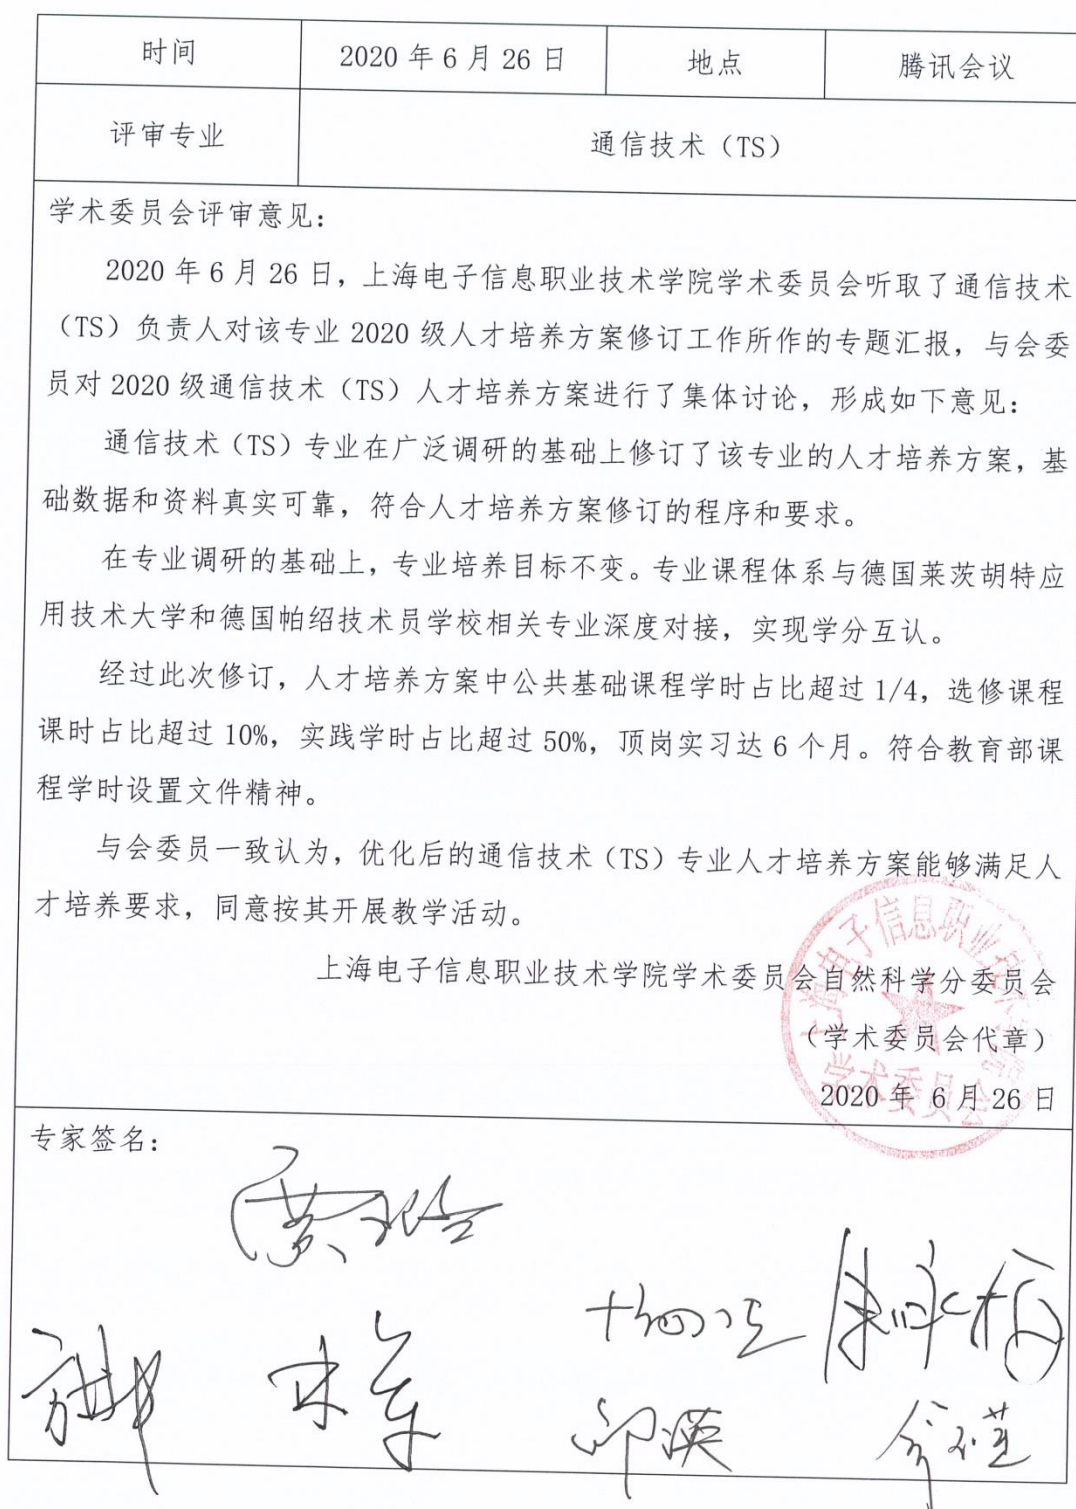 时间 2020 年 6 月 26 日 地点 腾讯会议
评审专业 通信技术（TS）
学术委员会评审意见：
2020 年 6 月 26 日，上海电子信息职业技术学院学术委员会听取了通信技术
（TS）负责人对该专业 2020 级人才培养方案修订工作所作的专题汇报，与会委
员对 2020 级通信技术（TS）人才培养方案进行了集体讨论，形成如下意见：
通信技术（TS）专业在广泛调研的基础上修订了该专业的人才培养方案，基
础数据和资料真实可靠，符合人才培养方案修订的程序和要求。
在专业调研的基础上，专业培养目标不变。专业课程体系与德国莱茨胡特应
用技术大学和德国帕绍技术员学校相关专业深度对接，实现学分互认。
经过此次修订，人才培养方案中公共基础课程学时占比超过 1/4，选修课程
课时占比超过 10%，实践学时占比超过 50%，顶岗实习达 6 个月。符合教育部课
程学时设置文件精神。
与会委员一致认为，优化后的通信技术（TS）专业人才培养方案能够满足人
才培养要求，同意按其开展教学活动。
上海电子信息职业技术学院学术委员会自然科学分委员会
（学术委员会代章）
2020 年 6 月 26 日
上海电子信息职业技术学院
学术委员会
专家签名：
邱瑛